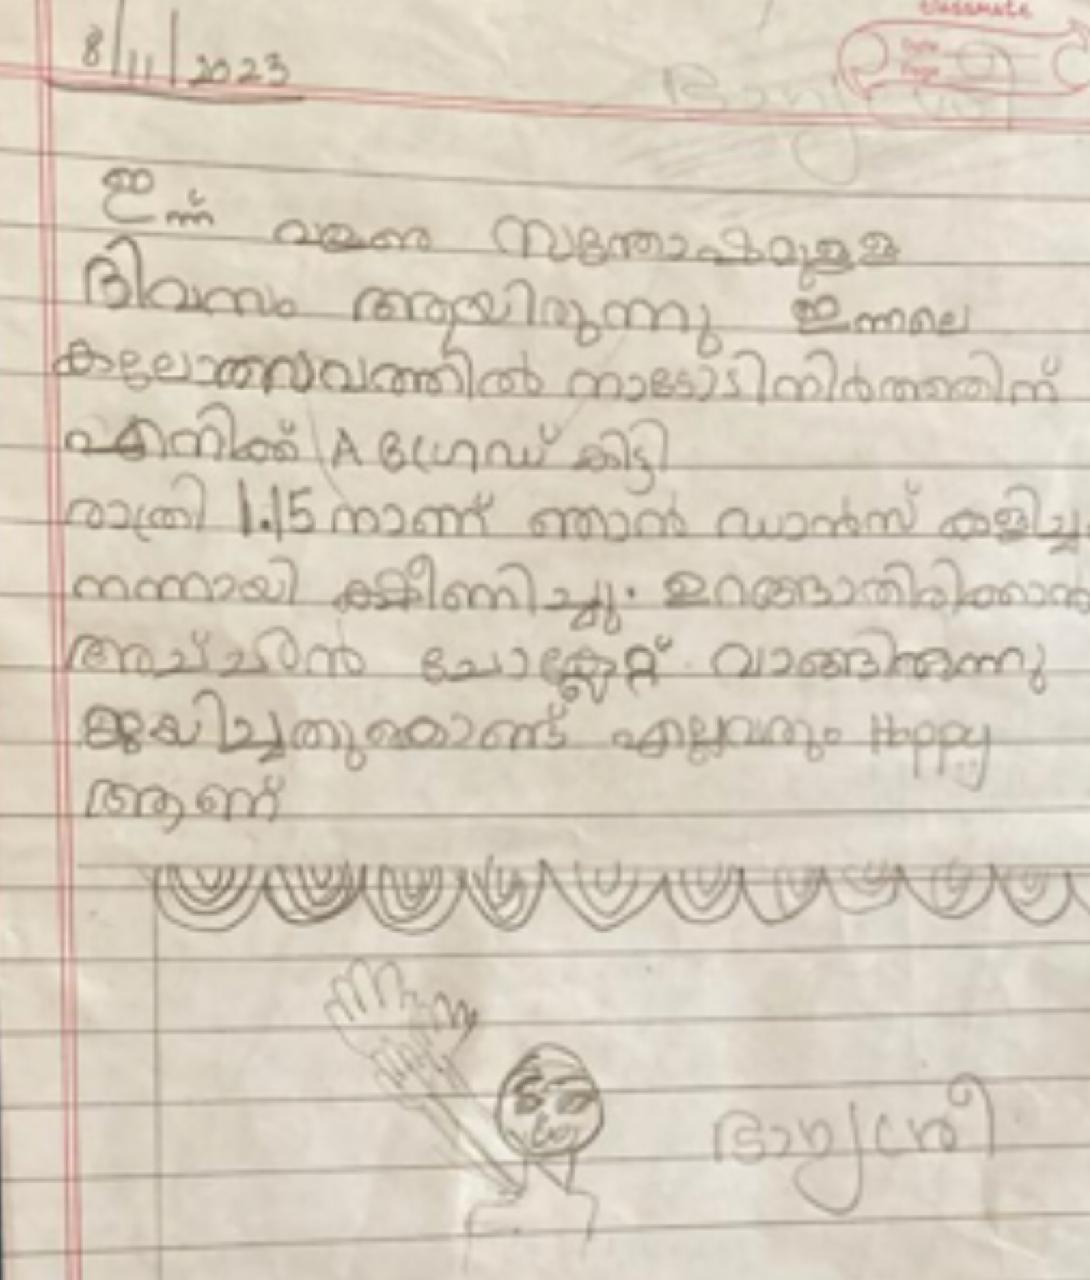 classmate
Date
Page
8/11/2023
ഇന്ന് വളരെ സന്തോഷമുള്ള
ദിവസം ആയിരുന്നു ഇന്നലെ
കലോത്സവത്തിൽ നാടോടിനിർത്തത്തിന്
എനിക്ക് A ഗ്രേഡ് കിട്ടി
രാത്രി 1.15 നാണ് ഞാൻ ഡാൻസ് കളിച്ച
നന്നായി ക്ഷീണിച്ചു. ഉറങ്ങാതിരിക്കാൻ
അച്ചൻ ചോക്ലേറ്റ് വാങ്ങിതന്നു
ജയിച്ചതുകൊണ്ട് എല്ലവരും Happy
ആണ്
ഭാഗ്യശ്രീ